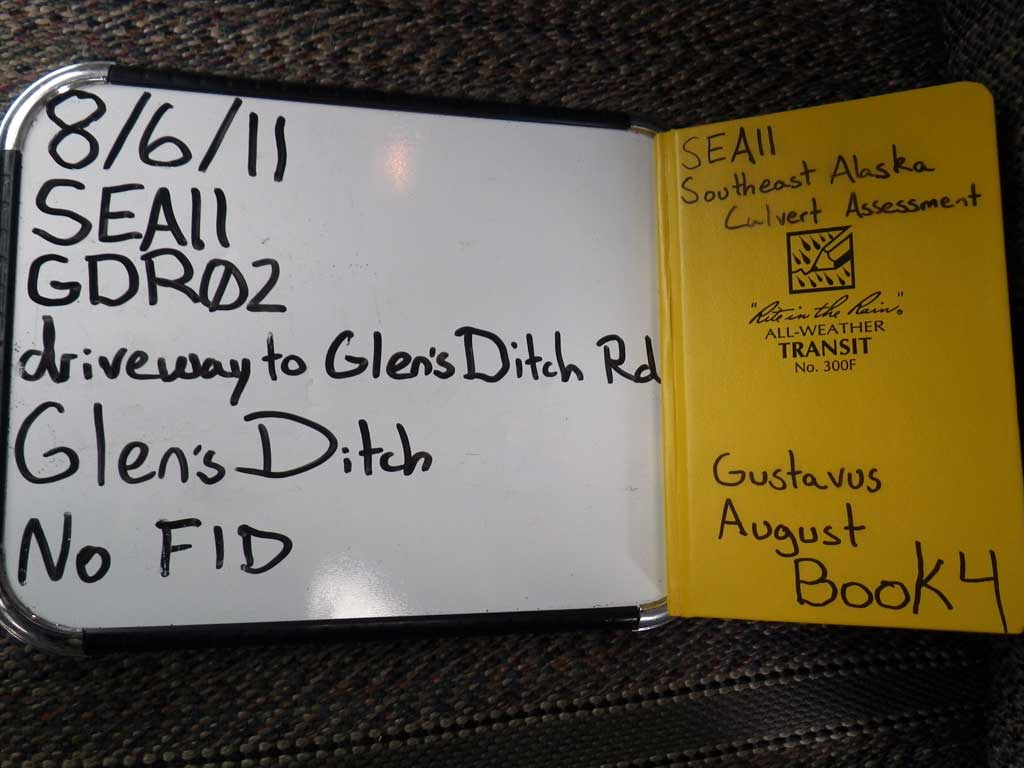 8/6/11
SEA11
GDRØ2
driveway to Glen's Ditch Rd
Glen's Ditch
No FID
SEA11
Southeast Alaska
Culvert Assessment
"Rite in the Rain"®
ALL-WEATHER
TRANSIT
No. 300F
Gustavus
August
Book 4